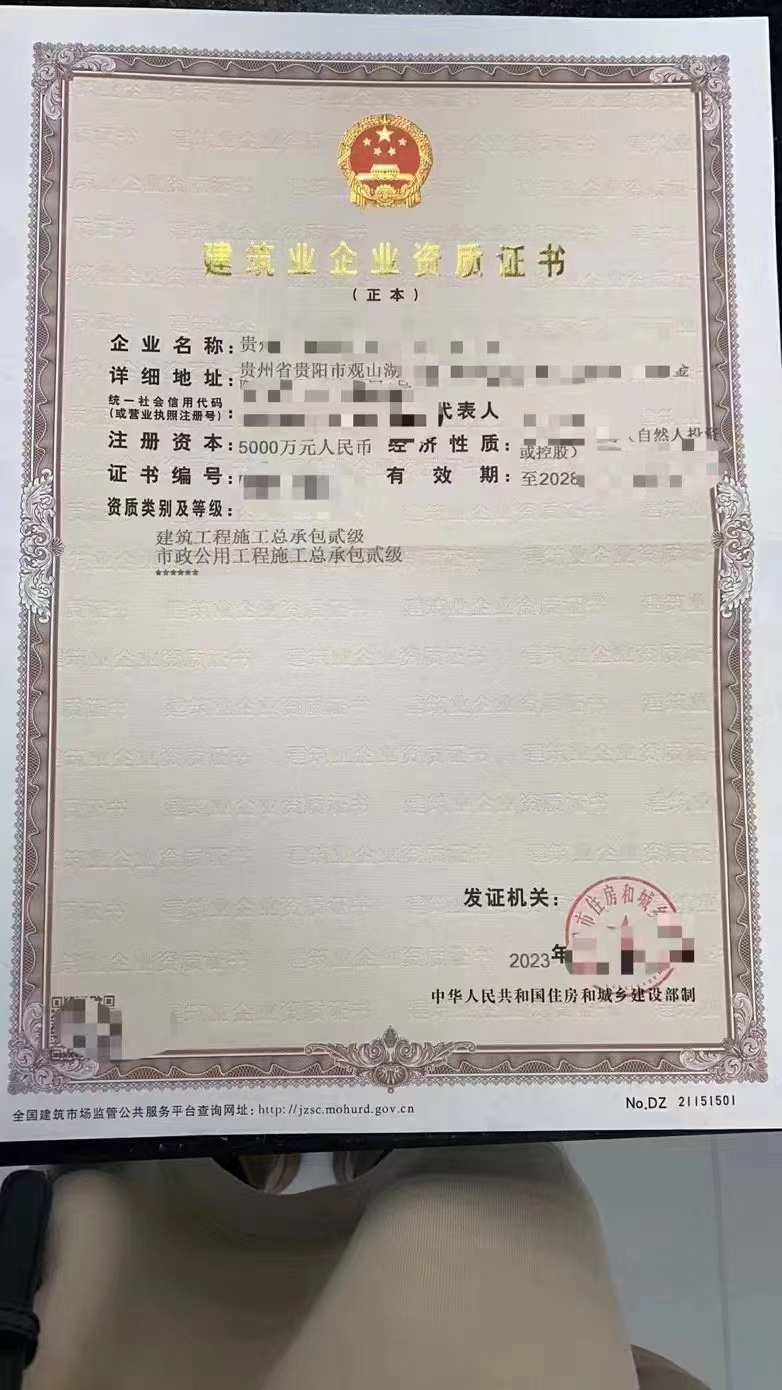 建筑业企业资质证书
(正本)
企业名称:贵
详细地址:贵州省贵阳市观山湖 金
统一社会信用代码
(或营业执照注册号):
代表人
注册资本:5000万元人民币 经济性质: 自然人投资
或控股)
证书编号: 有效期:至2028
资质类别及等级:
建筑工程施工总承包贰级
市政公用工程施工总承包贰级
******
发证机关:
市住房和城乡
2023年
中华人民共和国住房和城乡建设部制
全国建筑市场监管公共服务平台查询网址:http://jzsc.mohurd.gov.cn
No.DZ 21151501